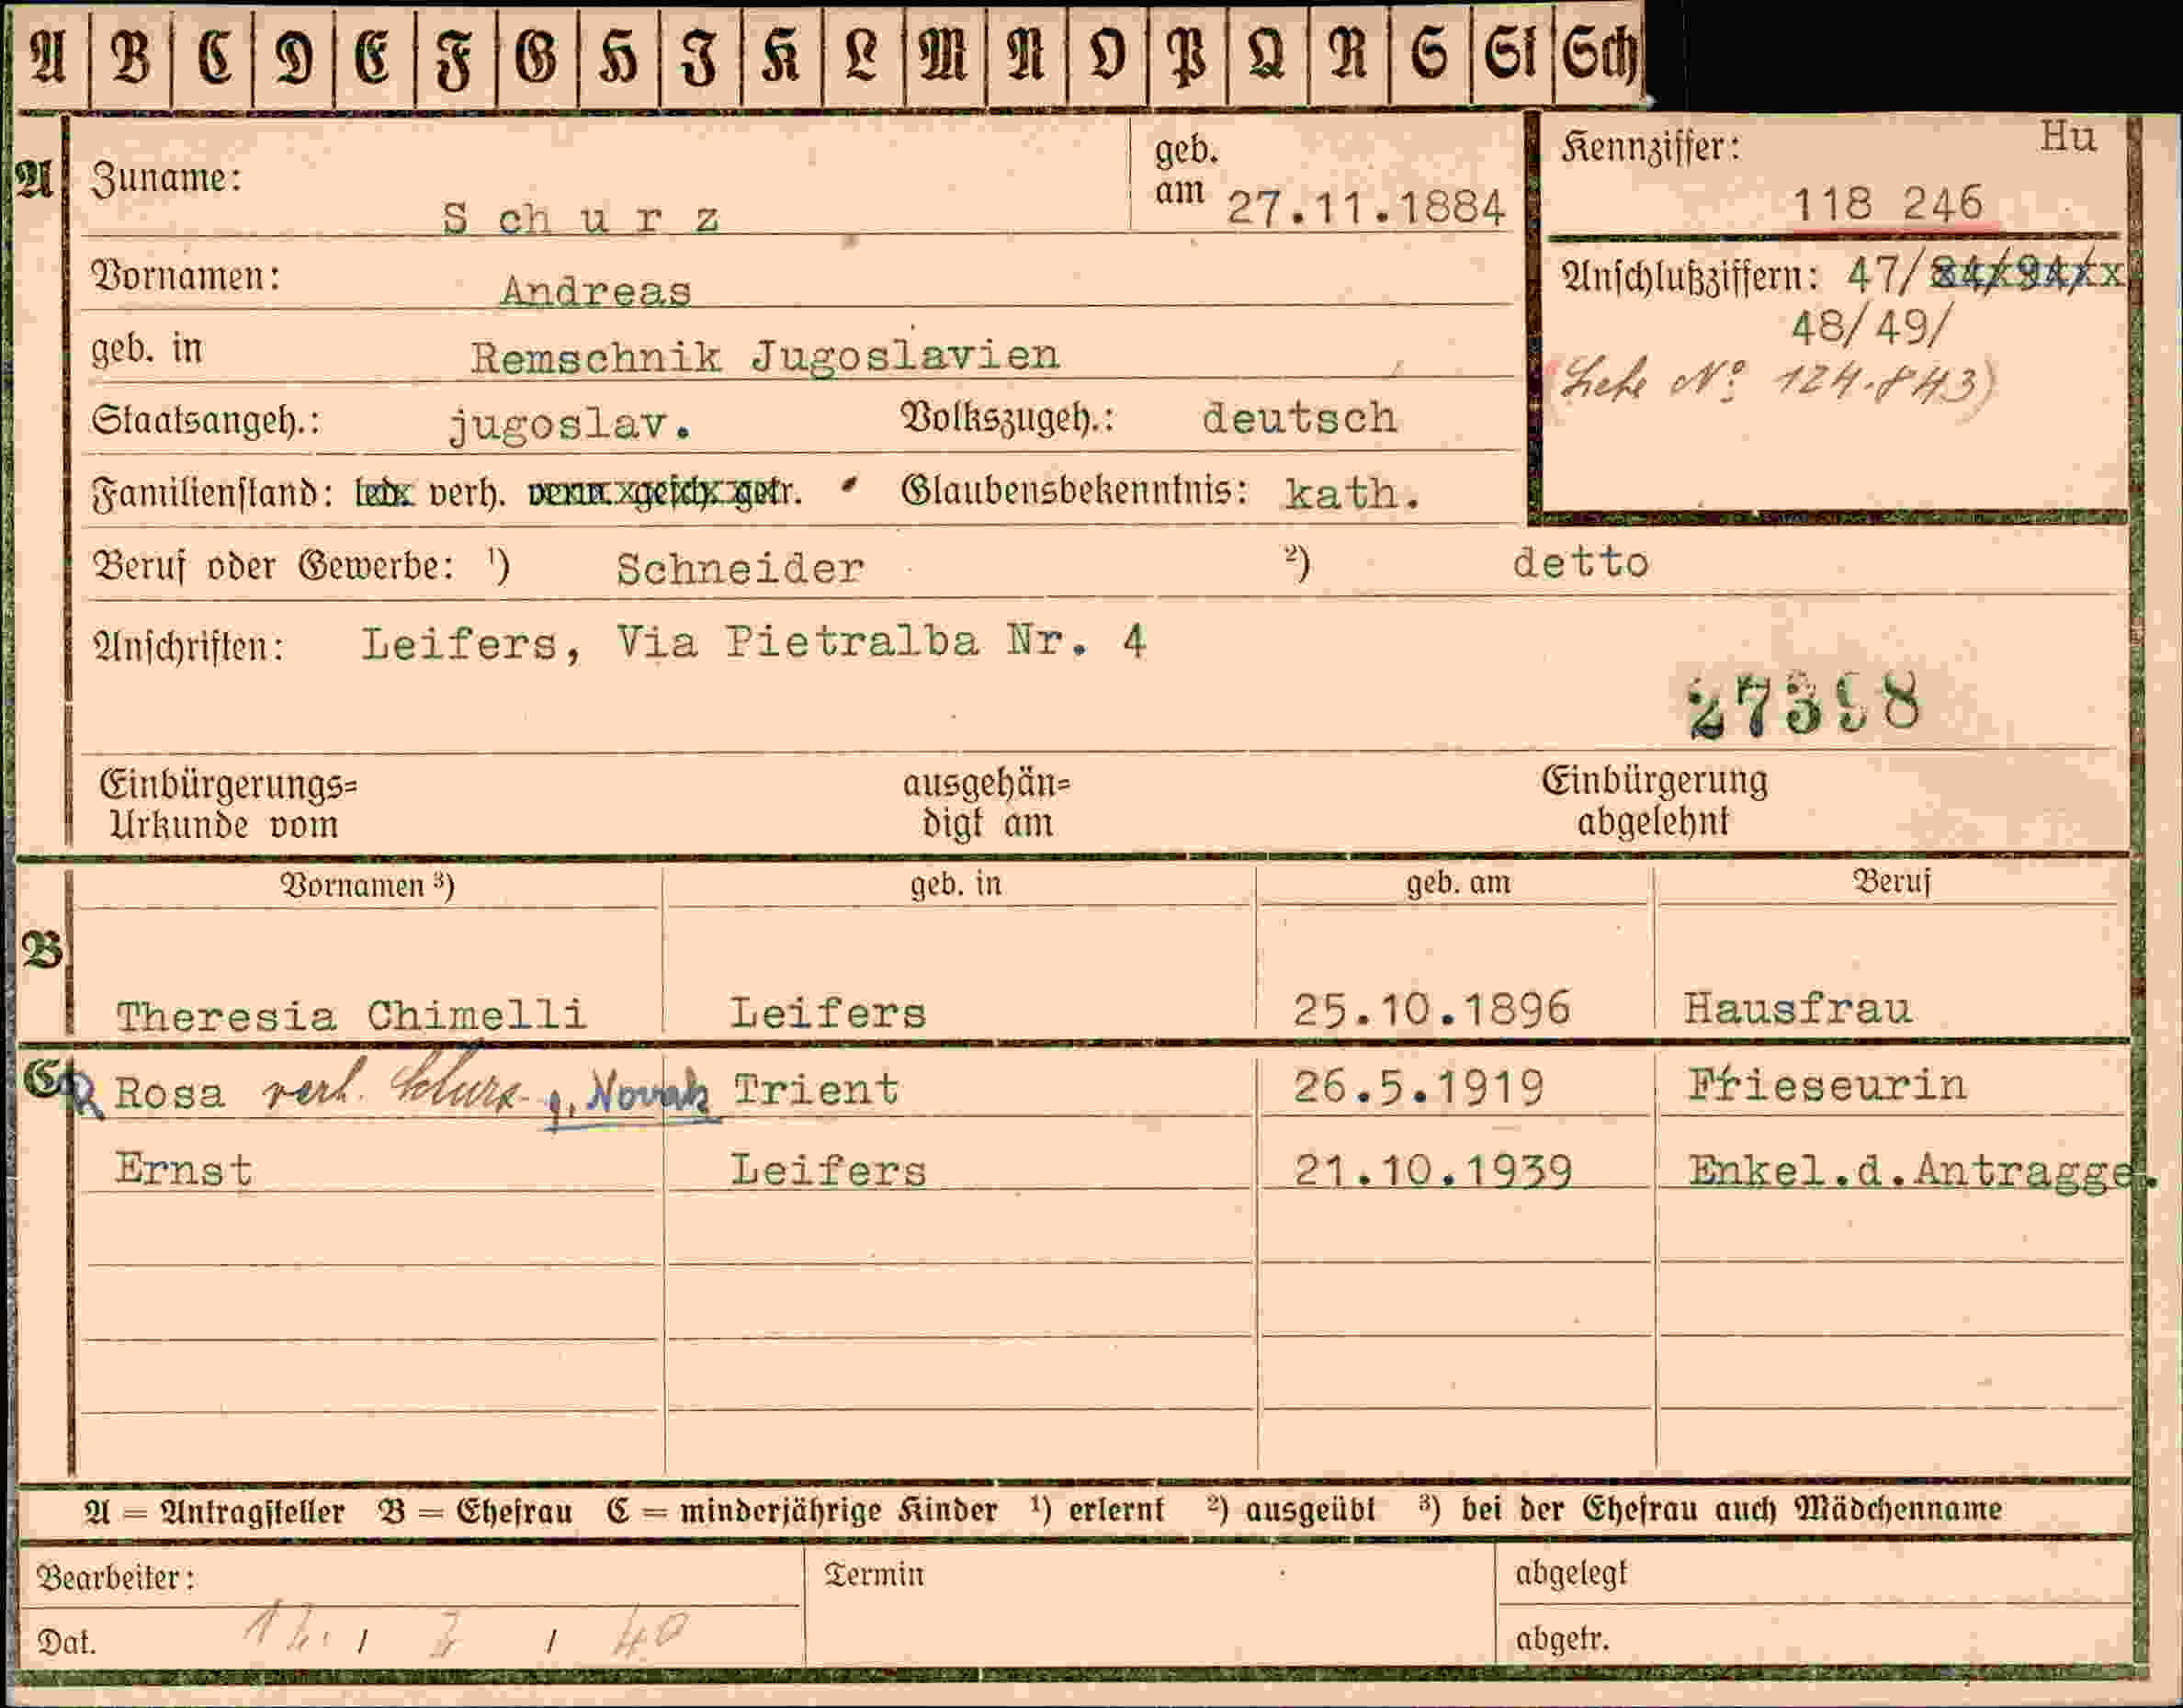 A B C D E F G H I K L M N O P Q R S St Sch
A Zuname: Schurz geb. am 27.11.1884
Kennziffer: Hu
118 246
Vornamen: Andreas
Anschlußziffern: 47/
48/49/
geb. in Remschnik Jugoslavien
No 124.843)
Staatsangeh.: jugoslav. Volkszugeh.: deutsch
Familienstand: led. verh. verw. gesch. getr. Glaubensbekenntnis: kath.
Beruf oder Gewerbe: ¹) Schneider ²) detto
Anschriften: Leifers, Via Pietralba Nr. 4
Einbürgerungs= ausgehän= Einbürgerung
Urkunde vom digt am abgelehnt
Vornamen ³) geb. in geb. am Beruf
B
Theresia Chimelli Leifers 25.10.1896 Hausfrau
C Rosa verh. Schurz g. Novak Trient 26.5.1919 Frieseurin
Ernst Leifers 21.10.1939 Enkel.d.Antragge.
A = Antragsteller B = Ehefrau C = minderjährige Kinder ¹) erlernt ²) ausgeübt ³) bei der Ehefrau auch Mädchenname
Bearbeiter: Termin abgelegt
Dat. abgetr.